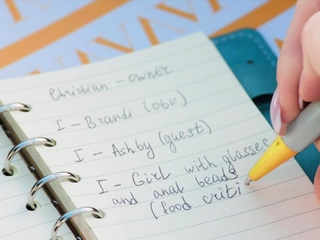 Christian - owner
I - Brandi (obv)
I - Ashby (guest)
I - Girl with glasses
and anal beads
(food criti